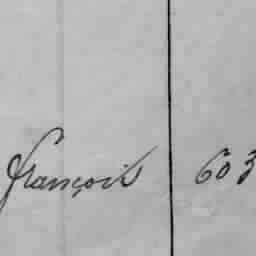 françois 603